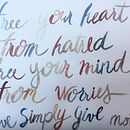 free your heart
from hatred
free your mind
from worries
simply give